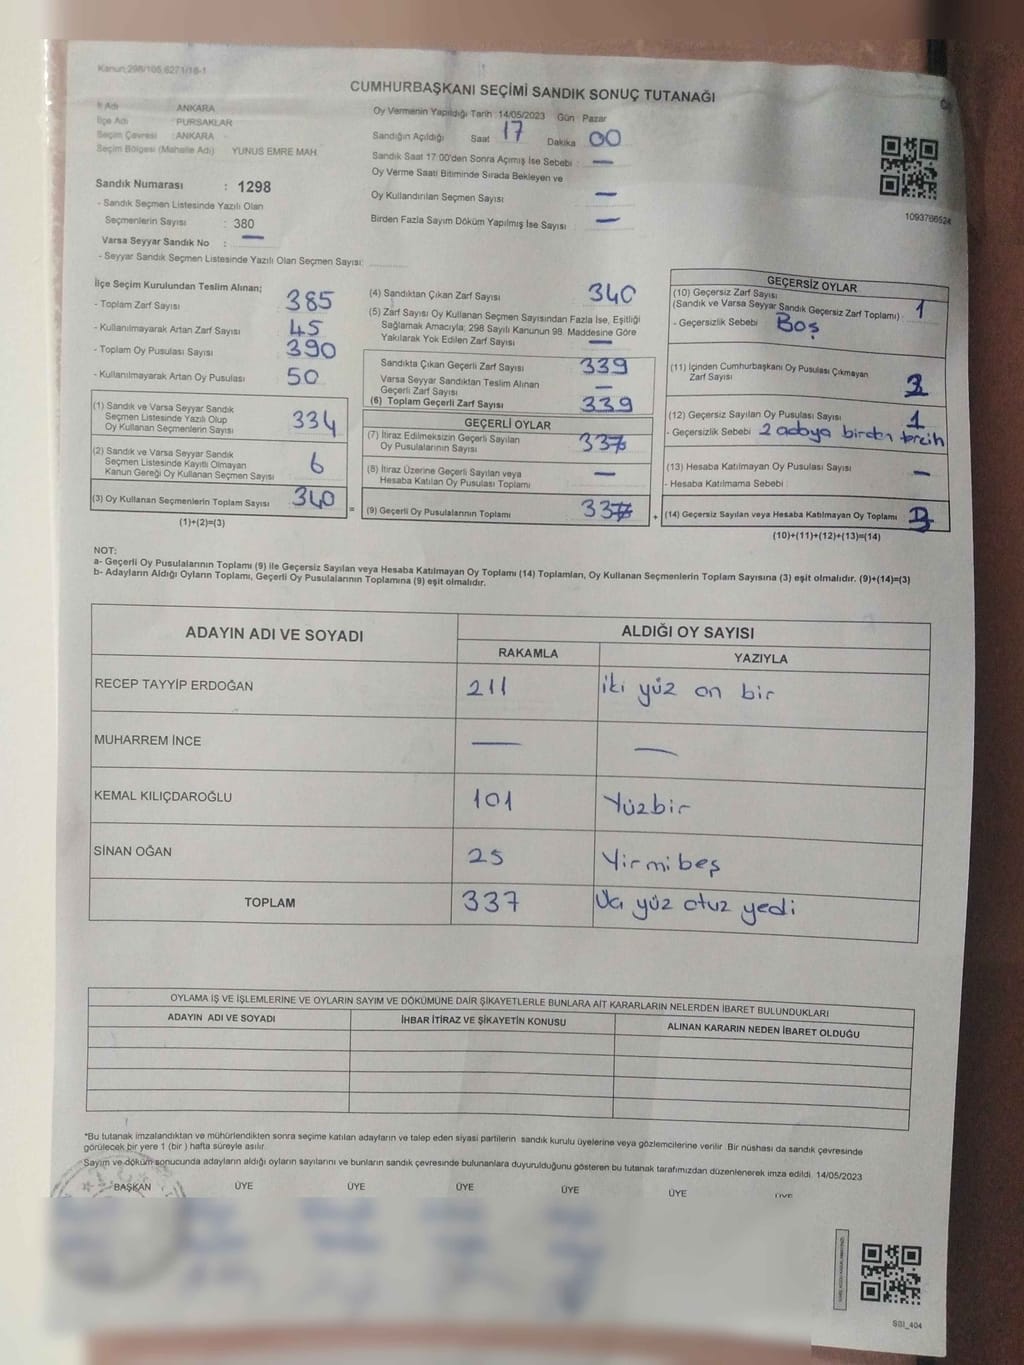 Kanun:298/105,6271/18-1
CUMHURBAŞKANI SEÇİMİ SANDIK SONUÇ TUTANAĞI
İl Adı ANKARA
İlçe Adı PURSAKLAR
Seçim Çevresi : ANKARA
Seçim Bölgesi (Mahalle Adı) YUNUS EMRE MAH.
Sandık Numarası : 1298
- Sandık Seçmen Listesinde Yazılı Olan
Seçmenlerin Sayısı : 380
Varsa Seyyar Sandık No : —
- Seyyar Sandık Seçmen Listesinde Yazılı Olan Seçmen Sayısı:
Oy Vermenin Yapıldığı Tarih :14/05/2023 Gün : Pazar
Sandığın Açıldığı Saat 17 Dakika 00
Sandık Saat 17:00'den Sonra Açılmış İse Sebebi : —
Oy Verme Saati Bitiminde Sırada Bekleyen ve
Oy Kullandırılan Seçmen Sayısı —
Birden Fazla Sayım Döküm Yapılmış İse Sayısı : —
1093766524
İlçe Seçim Kurulundan Teslim Alınan;
- Toplam Zarf Sayısı 385
- Kullanılmayarak Artan Zarf Sayısı 45
- Toplam Oy Pusulası Sayısı 390
- Kullanılmayarak Artan Oy Pusulası 50
(1) Sandık ve Varsa Seyyar Sandık
Seçmen Listesinde Yazılı Olup
Oy Kullanan Seçmenlerin Sayısı 334
(2) Sandık ve Varsa Seyyar Sandık
Seçmen Listesinde Kayıtlı Olmayan
Kanun Gereği Oy Kullanan Seçmen Sayısı 6
(3) Oy Kullanan Seçmenlerin Toplam Sayısı 340
(1)+(2)=(3)
(4) Sandıktan Çıkan Zarf Sayısı 340
(5) Zarf Sayısı Oy Kullanan Seçmen Sayısından Fazla İse, Eşitliği
Sağlamak Amacıyla; 298 Sayılı Kanunun 98. Maddesine Göre
Yakılarak Yok Edilen Zarf Sayısı —
Sandıkta Çıkan Geçerli Zarf Sayısı 339
Varsa Seyyar Sandıktan Teslim Alınan
Geçerli Zarf Sayısı —
(6) Toplam Geçerli Zarf Sayısı 339
GEÇERLİ OYLAR
(7) İtiraz Edilmeksizin Geçerli Sayılan
Oy Pusulalarının Sayısı 337
(8) İtiraz Üzerine Geçerli Sayılan veya
Hesaba Katılan Oy Pusulası Toplamı —
= (9) Geçerli Oy Pusulalarının Toplamı 337 +
GEÇERSİZ OYLAR
(10) Geçersiz Zarf Sayısı
(Sandık ve Varsa Seyyar Sandık Geçersiz Zarf Toplamı) : 1
- Geçersizlik Sebebi Boş
(11) İçinden Cumhurbaşkanı Oy Pusulası Çıkmayan
Zarf Sayısı
(12) Geçersiz Sayılan Oy Pusulası Sayısı 1
- Geçersizlik Sebebi 2 adaya birden tercih
(13) Hesaba Katılmayan Oy Pusulası Sayısı —
- Hesaba Katılmama Sebebi
(14) Geçersiz Sayılan veya Hesaba Katılmayan Oy Toplamı 3
(10)+(11)+(12)+(13)=(14)
NOT:
a- Geçerli Oy Pusulalarının Toplamı (9) ile Geçersiz Sayılan veya Hesaba Katılmayan Oy Toplamı (14) Toplamları, Oy Kullanan Seçmenlerin Toplam Sayısına (3) eşit olmalıdır. (9)+(14)=(3)
b- Adayların Aldığı Oyların Toplamı, Geçerli Oy Pusulalarının Toplamına (9) eşit olmalıdır.
ADAYIN ADI VE SOYADI ALDIĞI OY SAYISI
RAKAMLA YAZIYLA
RECEP TAYYİP ERDOĞAN 211 İki yüz on bir
MUHARREM İNCE — —
KEMAL KILIÇDAROĞLU 101 Yüzbir
SİNAN OĞAN 25 Yirmibeş
TOPLAM 337 Üç yüz otuz yedi
OYLAMA İŞ VE İŞLEMLERİNE VE OYLARIN SAYIM VE DÖKÜMÜNE DAİR ŞİKAYETLERLE BUNLARA AİT KARARLARIN NELERDEN İBARET BULUNDUKLARI
ADAYIN ADI VE SOYADI İHBAR İTİRAZ VE ŞİKAYETİN KONUSU ALINAN KARARIN NEDEN İBARET OLDUĞU
*Bu tutanak imzalandıktan ve mühürlendikten sonra seçime katılan adayların ve talep eden siyasi partilerin sandık kurulu üyelerine veya gözlemcilerine verilir. Bir nüshası da sandık çevresinde
görülecek bir yere 1 (bir) hafta süreyle asılır.
Sayım ve döküm sonucunda adayların aldığı oyların sayılarını ve bunların sandık çevresinde bulunanlara duyurulduğunu gösteren bu tutanak tarafımızdan düzenlenerek imza edildi. 14/05/2023
BAŞKAN ÜYE ÜYE ÜYE ÜYE ÜYE ÜYE
SSI_404